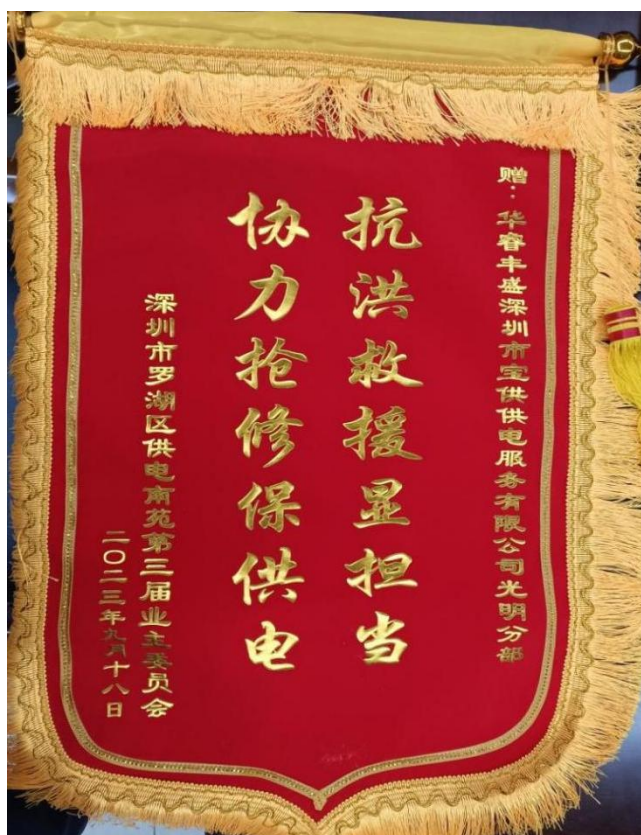 赠：华睿丰盛深圳市宝供供电服务有限公司光明分部
抗洪救援显担当
协力抢修保供电
深圳市罗湖区供电南苑第三届业主委员会
二〇二三年九月十八日